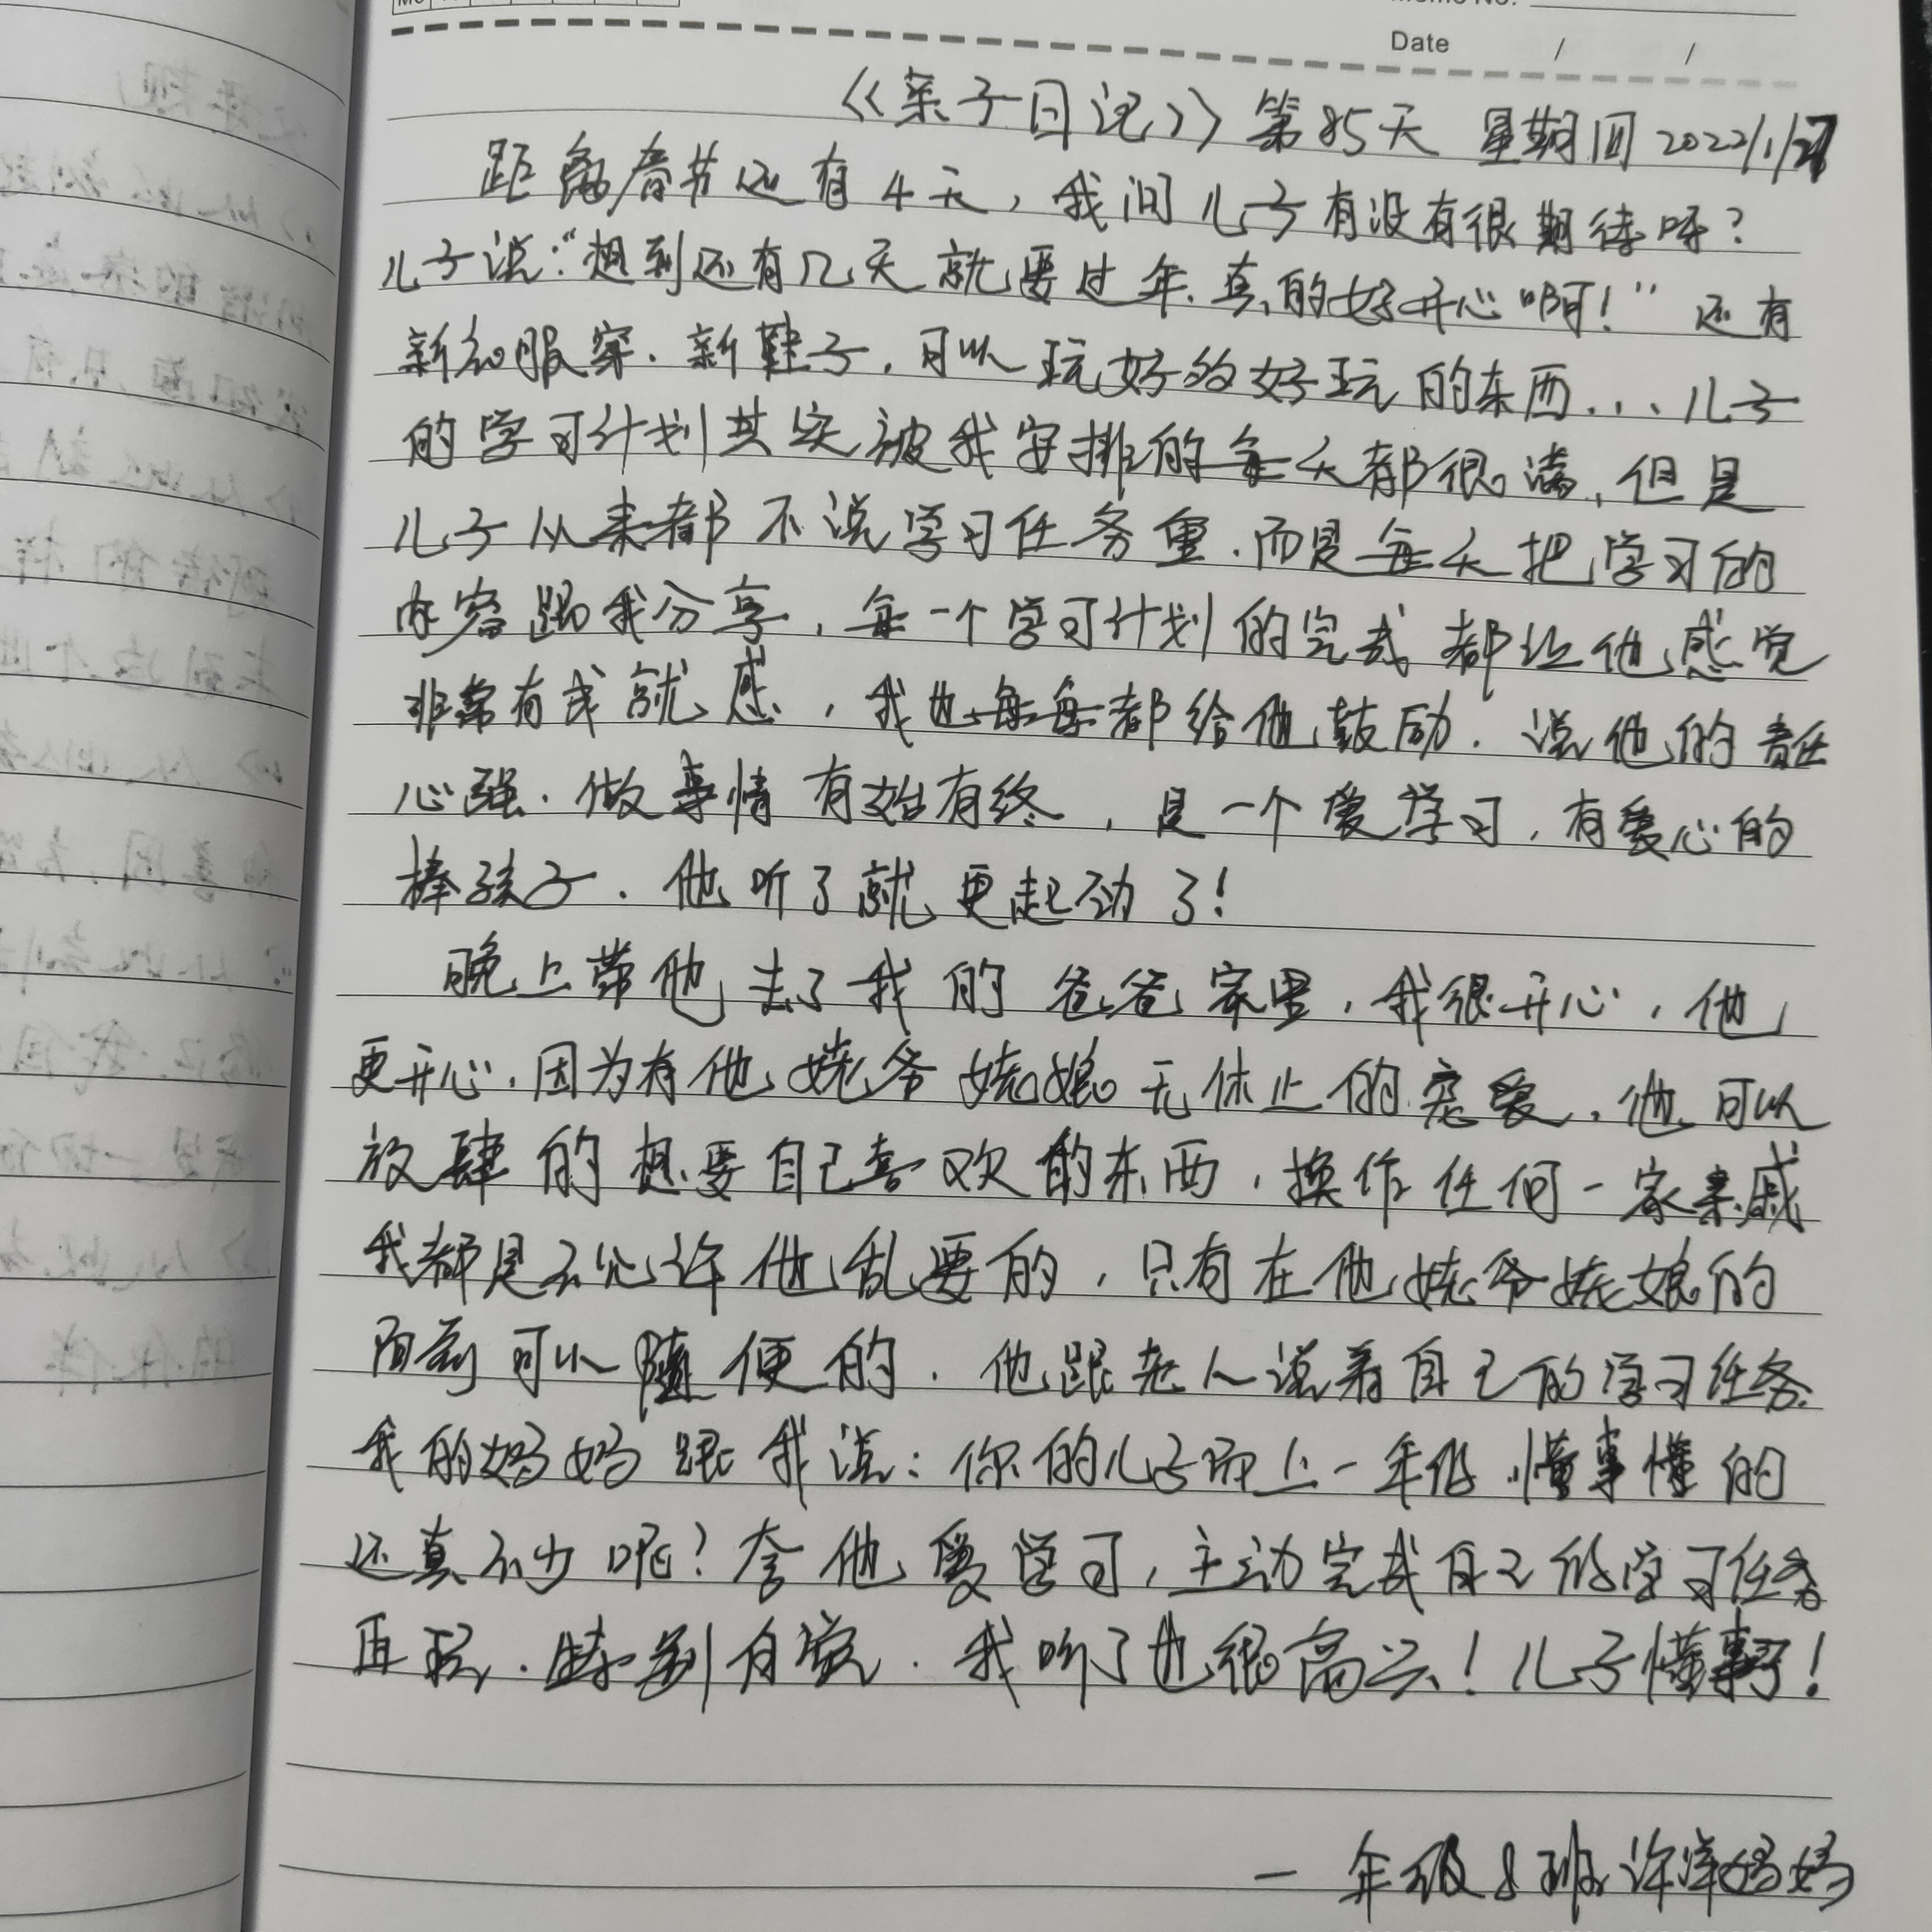 Date / /
《亲子日记》第85天 星期四 2022/1/27
距离春节还有4天，我问儿子有没有很期待呀？
儿子说：“想到还有几天就要过年，真的好开心啊！”还有
新衣服穿，新鞋子，可以玩好多好玩的东西...儿子
的学习计划其实被我安排的每天都很满，但是
儿子从来都不说学习任务重，而是每天把学习的
内容跟我分享，每一个学习计划的完成都让他感觉
非常有成就感，我也每每都给他鼓励，说他的责任
心强，做事情有始有终，是一个爱学习，有爱心的
棒孩子，他听了就更起劲了！
晚上带他去了我的爸爸家里，我很开心，他
更开心，因为有他姥爷姥娘无休止的宠爱，他可以
放肆的想要自己喜欢的东西，换作任何一家亲戚
我都是不允许他乱要的，只有在他姥爷姥娘的
面前可以随便的，他跟老人说着自己的学习任务
我的妈妈跟我说：你的儿子而上一年级懂事懂的
还真不少呢？夸他爱学习，主动完成自己的学习任务
再玩，特别自觉，我听了也很高兴！儿子懂事了！
一年级8班许洋妈妈